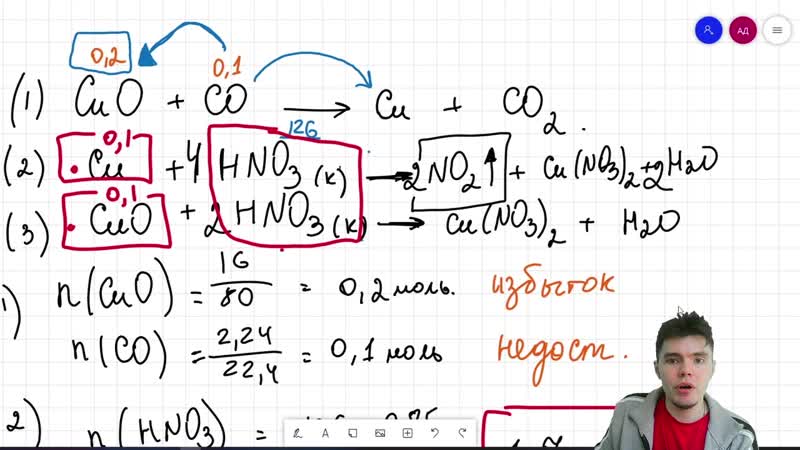 АД
0,2
0,1
(1) CuO + CO → Cu + CO2.
0,1
126
(2) Cu + 4 HNO3 (к) → 2NO2↑ + Cu(NO3)2 + 2H2O
0,1
(3) CuO + 2HNO3 (к) → Cu(NO3)2 + H2O
1) n(CuO) = 16/80 = 0,2 моль. избыток
n(CO) = 2,24/22,4 = 0,1 моль недост.
2) n(HNO3) =